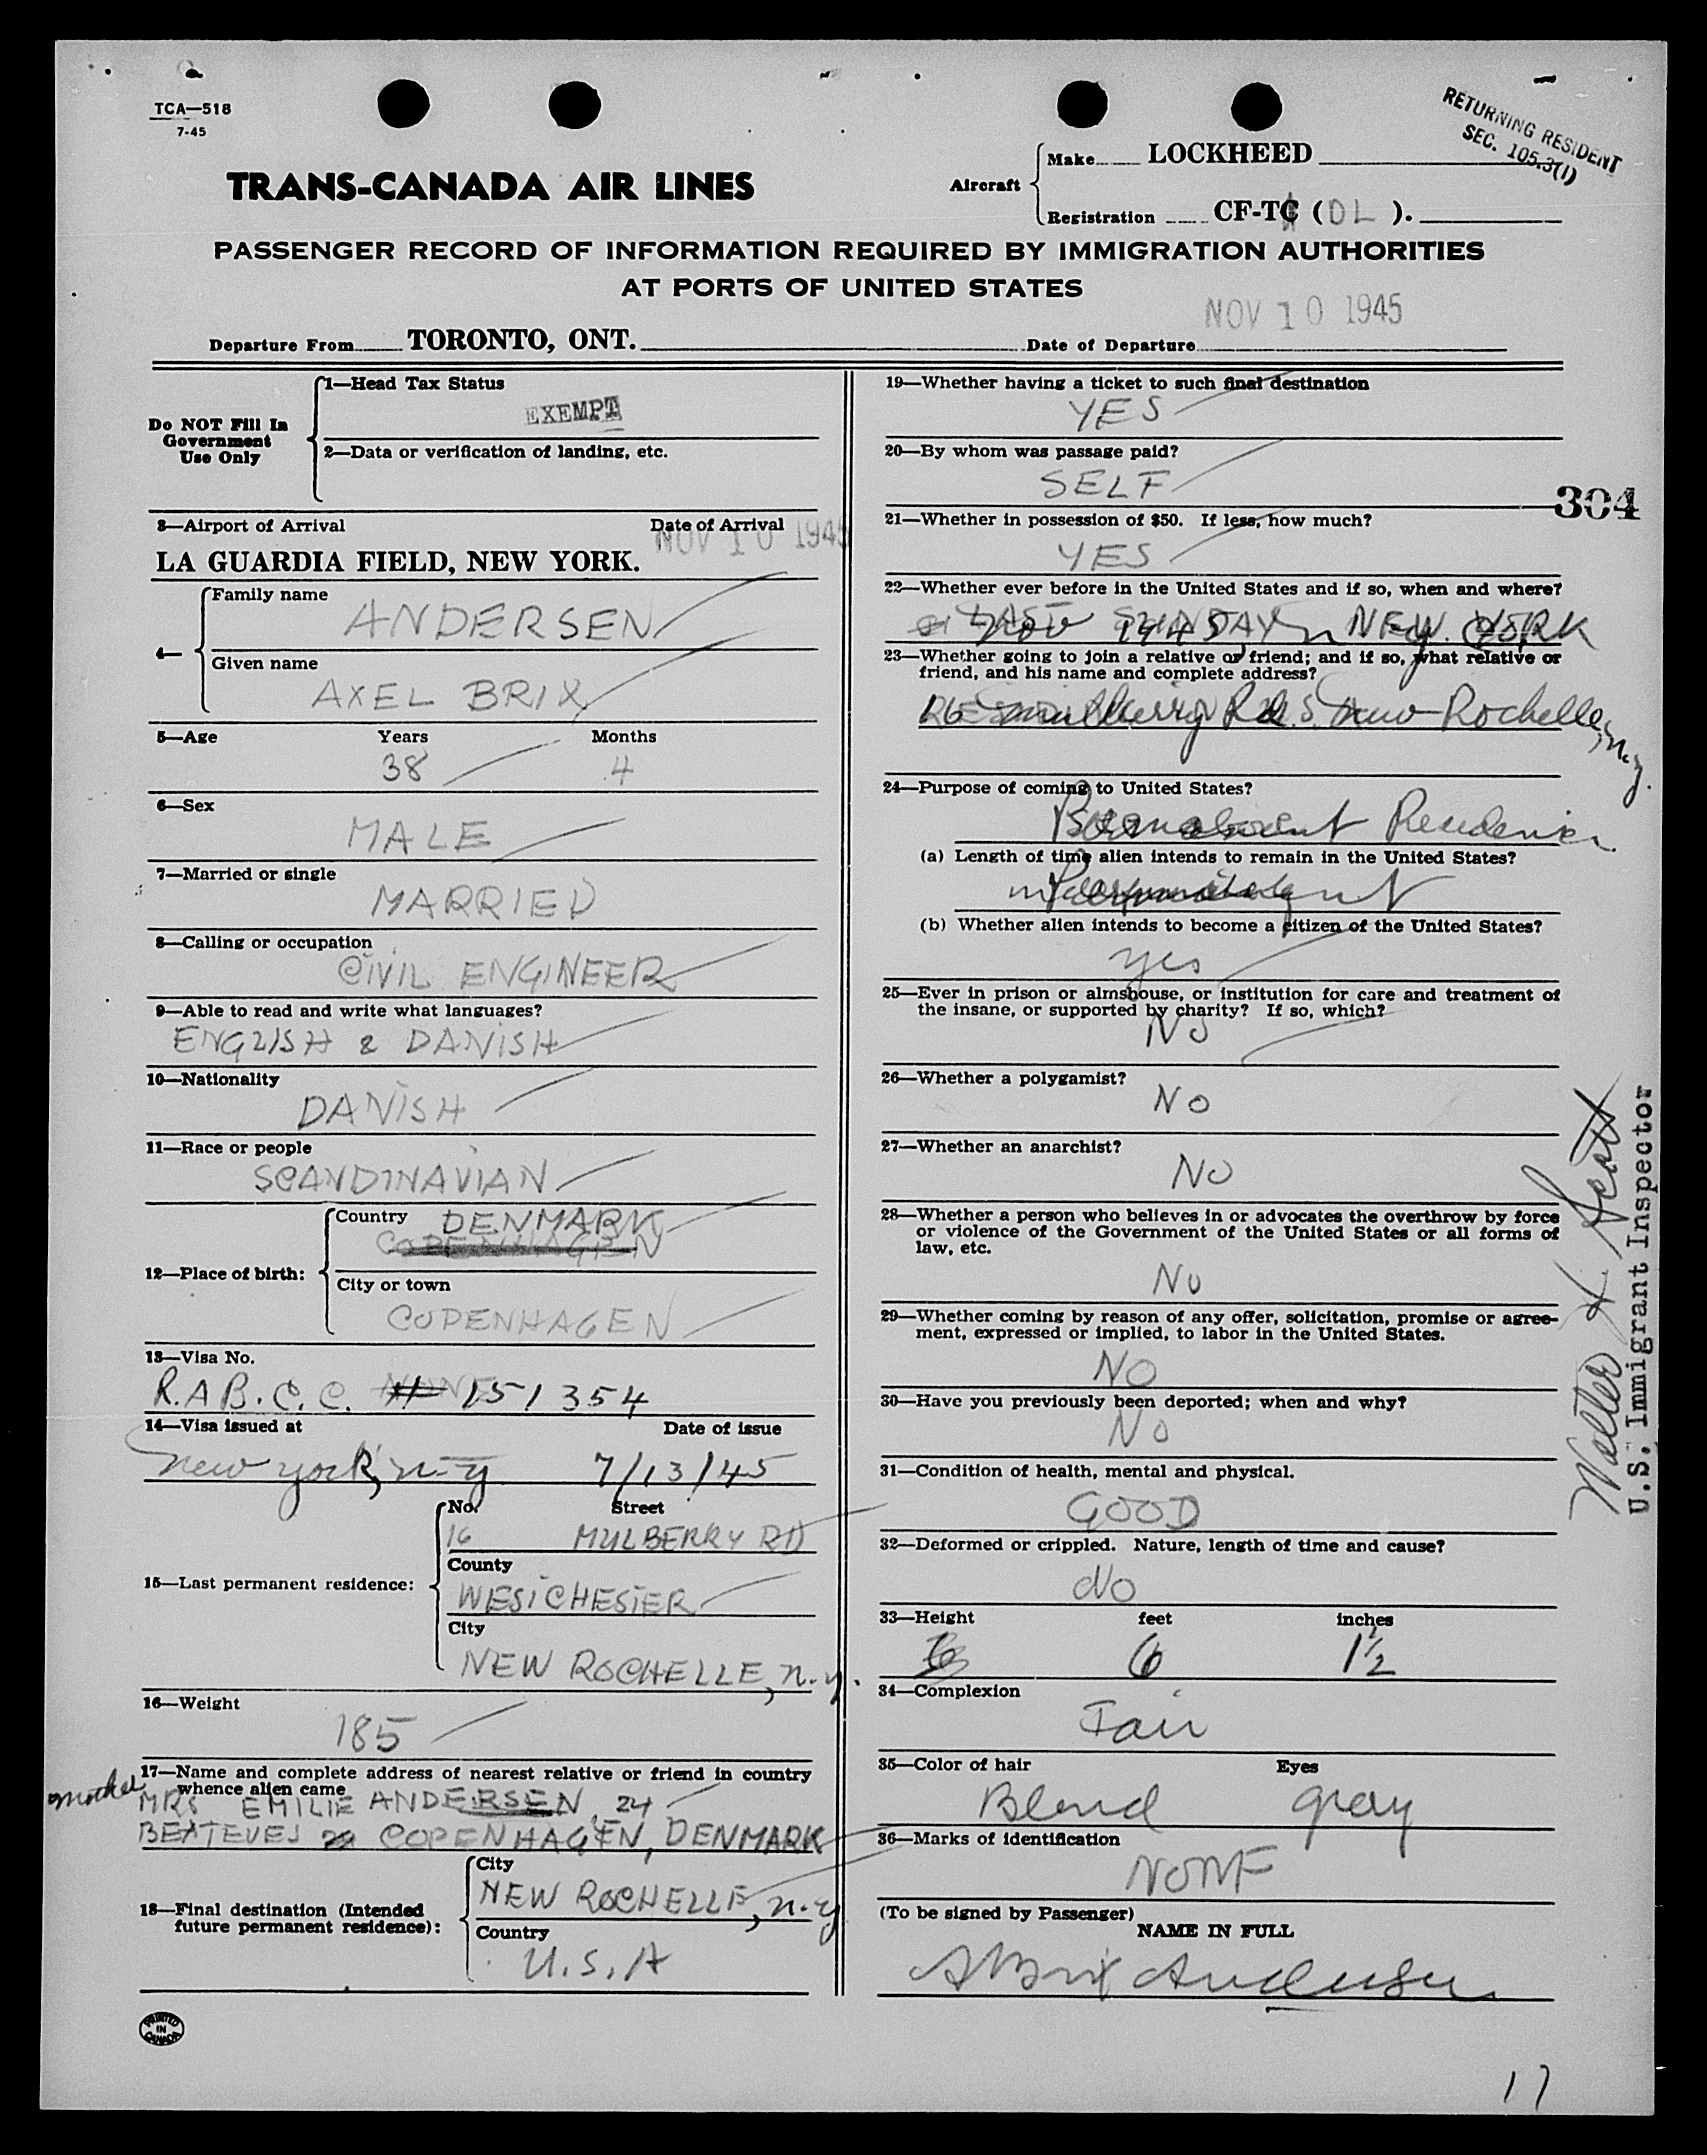 TCA—518
7-45
RETURNING RESIDENT
SEC. 105.3(1)
TRANS-CANADA AIR LINES
Aircraft
Make LOCKHEED
Registration CF-TC (DL).
PASSENGER RECORD OF INFORMATION REQUIRED BY IMMIGRATION AUTHORITIES
AT PORTS OF UNITED STATES
NOV 10 1945
Departure From TORONTO, ONT. Date of Departure
Do NOT Fill In
Government
Use Only
1—Head Tax Status
EXEMPT
2—Data or verification of landing, etc.
3—Airport of Arrival Date of Arrival
NOV 10 1945
LA GUARDIA FIELD, NEW YORK.
4—
Family name
ANDERSEN
Given name
AXEL BRIX
5—Age Years Months
38 4
6—Sex
MALE
7—Married or single
MARRIED
8—Calling or occupation
CIVIL ENGINEER
9—Able to read and write what languages?
ENGLISH & DANISH
10—Nationality
DANISH
11—Race or people
SCANDINAVIAN
12—Place of birth:
Country
DENMARK
COPENHAGEN
City or town
COPENHAGEN
13—Visa No.
R.A B.C.C. # 151354
14—Visa issued at Date of issue
New York, N.Y 7/13/45
15—Last permanent residence:
No. Street
16 MULBERRY RD
County
WESTCHESTER
City
NEW ROCHELLE, N.Y.
16—Weight
185
17—Name and complete address of nearest relative or friend in country
whence alien came
mother
MRS EMILIE ANDERSEN, 24
BEATEVEJ COPENHAGEN, DENMARK
18—Final destination (Intended
future permanent residence):
City
NEW ROCHELLE, N.Y
Country
U.S.A
PRINTED
IN
CANADA
19—Whether having a ticket to such final destination
YES
20—By whom was passage paid?
SELF
304
21—Whether in possession of $50. If less, how much?
YES
22—Whether ever before in the United States and if so, when and where?
LAST SUNDAY NEW YORK
Nov 1945
23—Whether going to join a relative or friend; and if so, what relative or
friend, and his name and complete address?
16 Mulberry Rd. New Rochelle, N.Y.
24—Purpose of coming to United States?
Permanent Residence
(a) Length of time alien intends to remain in the United States?
Permanent
(b) Whether alien intends to become a citizen of the United States?
yes
25—Ever in prison or almshouse, or institution for care and treatment of
the insane, or supported by charity? If so, which?
NO
26—Whether a polygamist?
NO
27—Whether an anarchist?
NO
28—Whether a person who believes in or advocates the overthrow by force
or violence of the Government of the United States or all forms of
law, etc.
NO
29—Whether coming by reason of any offer, solicitation, promise or agree-
ment, expressed or implied, to labor in the United States.
NO
30—Have you previously been deported; when and why?
NO
31—Condition of health, mental and physical.
GOOD
32—Deformed or crippled. Nature, length of time and cause?
NO
33—Height feet inches
6 1½
34—Complexion
Fair
35—Color of hair Eyes
Blond gray
36—Marks of identification
NONE
(To be signed by Passenger)
NAME IN FULL
A Brix Andersen
Walter H Scott
U.S. Immigrant Inspector
17